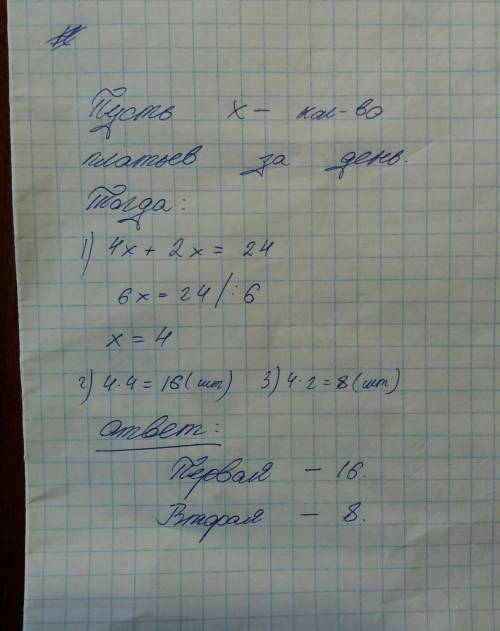 Пусть x — кол-во
платьев за день.
Тогда:
1) 4x + 2x = 24
6x = 24 /:6
x = 4
2) 4·4=16(шт) 3) 4·2=8(шт)
ответ:
Первая — 16.
Вторая — 8.